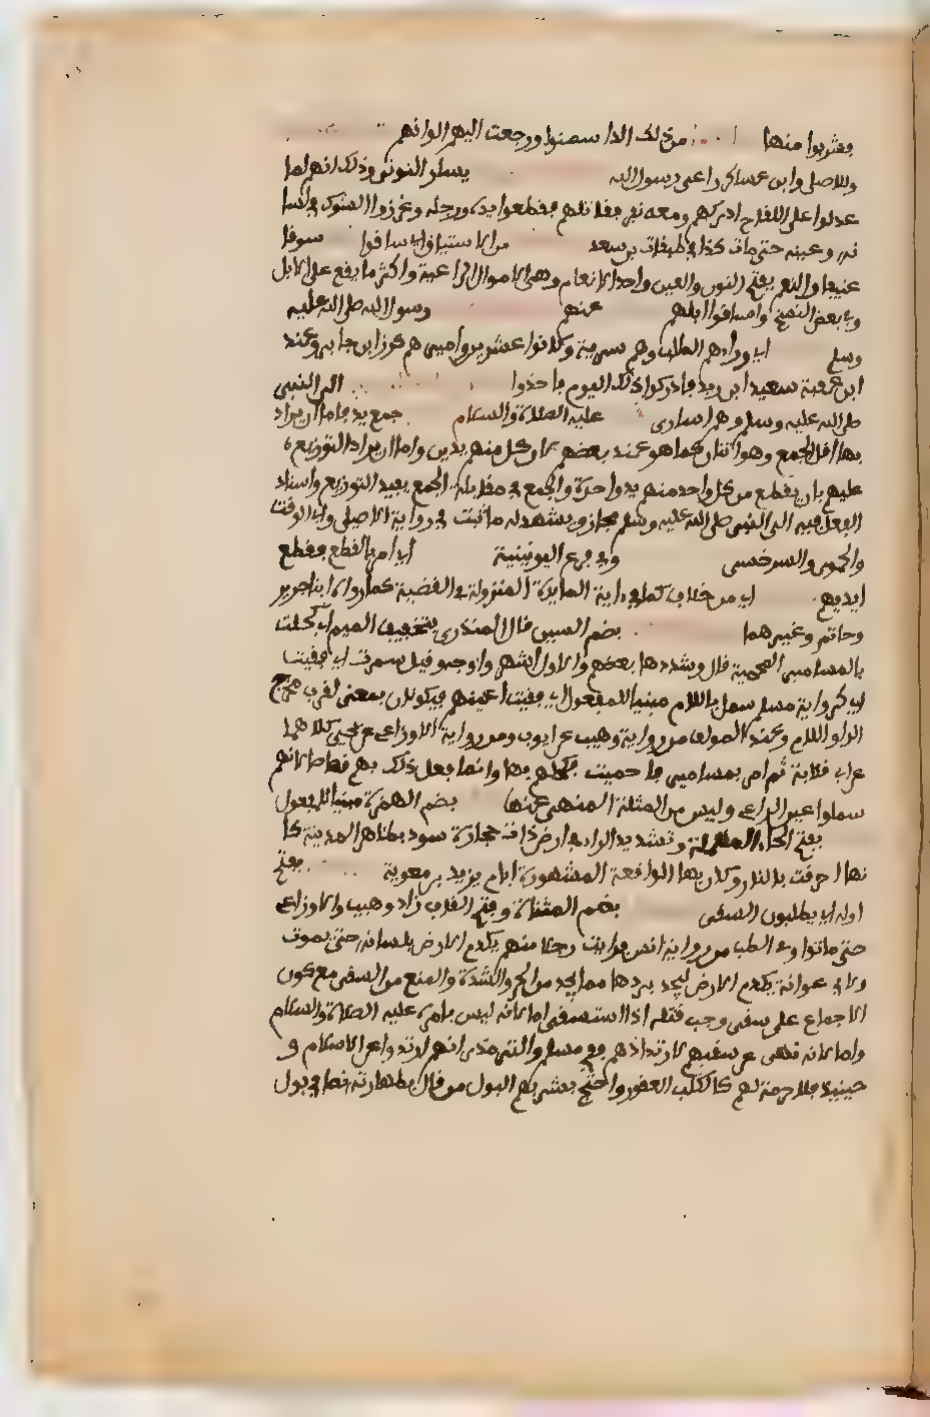 فشربوا منها من ذلك الداء سمنوا ورجعت اليهم الوانهم
وللاصيلي وابن عساكر راعي رسول الله يسار النوبي وذلك انهم لما
عدوا على اللقاح ادركهم ومعه نفر فقاتلهم فقطعوا يده ورجله وغرزوا الشوك في لسا
نه وعينه حتى مات كذا في طبقات بن سعد من الاستياق اي ساقوا سوقا
عنيفا والنعم بفتح النون والعين واحد الانعام وهي الاموال الراعية واكثر ما يقع على الابل
وفي بعض النسخ واستاقوا ابلهم عنهم رسول الله صلى الله عليه
وسلم اي وراءهم الطلب وهم سرية وكانوا عشرين واميرهم كرز ابن جابر وعند
ابن عقبة سعيد ابن زيد فادركوا ذلك اليوم فاخذوا الى النبي
صلى الله عليه وسلم وهم اسارى عليه الصلاة والسلام جمع يد فاما ان يراد
بها اقل الجمع وهو اثنان كما هو عند بعضهم لان كل منهم يدين واما ان يراد التوزيع
عليهم بان يقطع من كل واحد منهم يد واحدة والجمع في مقابلة الجمع يفيد التوزيع واسناد
الفعل فيه الى النبي صلى الله عليه وسلم مجاز ويشهد له ما ثبت في رواية الاصيلي وابي الوقت
والحموي والسرخسي وفي فرع اليونينية اي امر بالقطع فقطع
ايديهم اي من خلاف كما في اية المايدة المنزولة في القضية كما رواه ابن جرير
وحاتم وغيرهما بضم السين قال المنذري بتخفيف الميم اي كحلت
بالمسامير المحمية قال وشددها بعضهم والاول اشهر واوجه وقيل سمرت اي فقيت
اي كرواية مسلم سمل باللام مبنيا للمفعول اي فقيت اعينهم فيكونان بمعنى لقرب مخرج
الراء واللام وعند المولف من رواية وهيب عن ايوب ومن رواية الاوزاعي عن يحيى كلاهما
عن ابي قلابة ثم امر بمسامير فاحميت فكحلهم بها وانما فعل ذلك بهم قصاصا لانهم
سملوا عين الراعي وليس من المثلة المنهي عنها بضم الهمزة مبنيا للمفعول
بفتح الحاء المهملة وتشديد الراء في ارض ذات حجارة سود بظاهر المدينة كا
نها احرقت بالنار وكان بها الواقعة المشهورة ايام يزيد بن معوية بفتح
اوله اي يطلبون السقي بضم المثناة وفتح القاف زاد وهيب والاوزاعي
حتى ماتوا وفي الطب من رواية انس فرايت رجلا منهم يكدم الارض بلسانه حتى يموت
ولابي عوانة يكدم الارض ليجد بردها مما يجد من الحر والشدة والمنع من السقي مع كون
الاجماع على سقي وجب قتله اذا استسقى اما لانه ليس بامره عليه الصلاة والسلام
واما لانه نهى عن سقيهم لارتدادهم ففي مسلم والترمذي انهم ارتدوا عن الاسلام و
حينيذ فلا حرمة لهم كالكلب العقور واحتج بشربهم البول من قال بطهارته نصا في بول